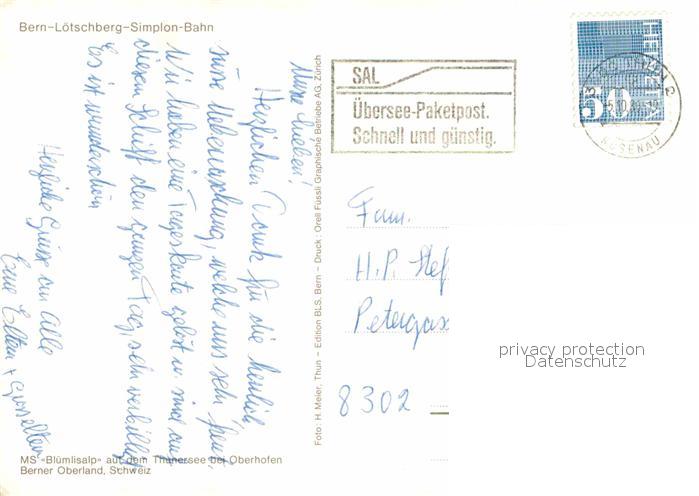 Bern-Lötschberg-Simplon-Bahn
Meine Lieben!
Herzlichen Dank für die herrlich
süsse Ueberraschung, welche uns sehr freut,
Wir haben eine Tageskarte gelöst u. sind auf
diesem Schiff den ganzen Tag, sehr verbilligt
Es ist wunderschön
Herzliche Grüsse an Alle
Eure Eltern + Grosseltern
MS «Blümlisalp» auf dem Thunersee bei Oberhofen
Berner Oberland, Schweiz
Foto: H. Meier, Thun – Edition BLS, Bern – Druck: Orell Füssli Graphische Betriebe AG, Zürich
SAL
Übersee-Paketpost.
Schnell und günstig.
HELVETIA
50
ROSENAU
Fam.
H.P. Stef
Petergas
8302
privacy protection
Datenschutz